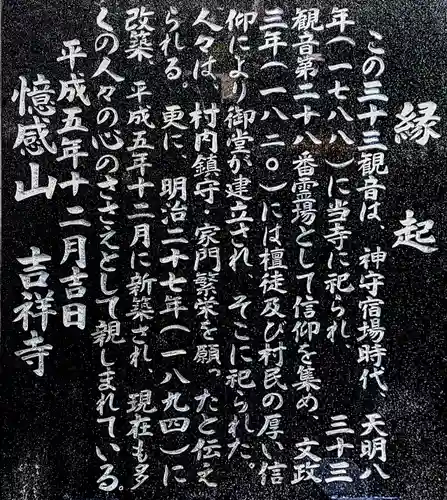 縁起
この三十三観音は、神守宿場時代、天明八
年(一七八八)に当寺に祀られ、三十三
観音第二十八番霊場として信仰を集め、文政
三年(一八二〇)には檀徒及び村民の厚い信
仰により御堂が建立され、そこに祀られた。
人々は、村内鎮守・家門繁栄を願ったと伝え
られる。更に、明治二十七年(一八九四)に
改築、平成五年十二月に新築され、現在も多
くの人々の心のささえとして親しまれている。
平成五年十二月吉日
憶感山 吉祥寺